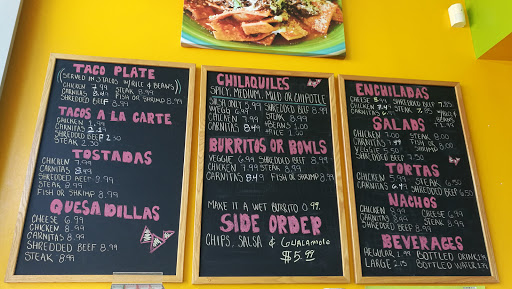 TACO PLATE
(SERVED IN 3 TACOS W/RICE & BEANS)
CHICKEN 7.99 STEAK 8.99
CARNITAS 8.49 FISH OR SHRIMP 8.99
SHREDDED BEEF 8.99
TACOS A LA CARTE
CHICKEN 1.99
CARNITAS
SHREDDED BEEF 2.50
STEAK 2.50
TOSTADAS
CHICKEN 7.99
CARNITAS 8.49
SHREDDED BEEF 8.99
STEAK 8.99
FISH OR SHRIMP 8.99
QUESADILLAS
CHEESE 6.99
CHICKEN 8.99
CARNITAS 8.49
SHREDDED BEEF 8.99
STEAK 8.99
CHILAQUILES
SPICY, MEDIUM, MILD OR CHIPOTLE
SALSA ONLY 5.99 SHREDDED BEEF 8.99
W/EGG 6.99 STEAK 8.99
CHICKEN 7.99 BEANS 1.00
CARNITAS 8.49 RICE
BURRITOS OR BOWLS
VEGGIE 6.99 SHREDDED BEEF 8.99
CHICKEN 7.99 STEAK 8.99
CARNITAS 8.49 FISH OR SHRIMP 8.99
MAKE IT A WET BURRITO 0.99
SIDE ORDER
CHIPS, SALSA & GUACAMOLE
$5.99
ENCHILADAS
CHEESE SHREDDED BEEF 7.85
CHICKEN STEAK 7.85
CARNITAS
SALADS
CHICKEN 7.00 STEAK 8.00
CARNITAS
VEGGIE
SHREDDED BEEF
TORTAS
CHICKEN 5.99 STEAK 6.50
CARNITAS SHREDDED BEEF 6.50
NACHOS
CHICKEN 8.99 CHEESE 6.99
CARNITAS STEAK 8.99
SHREDDED BEEF 8.99
BEVERAGES
REGULAR 1.99 BOTTLED DRINK
LARGE BOTTLED WATER